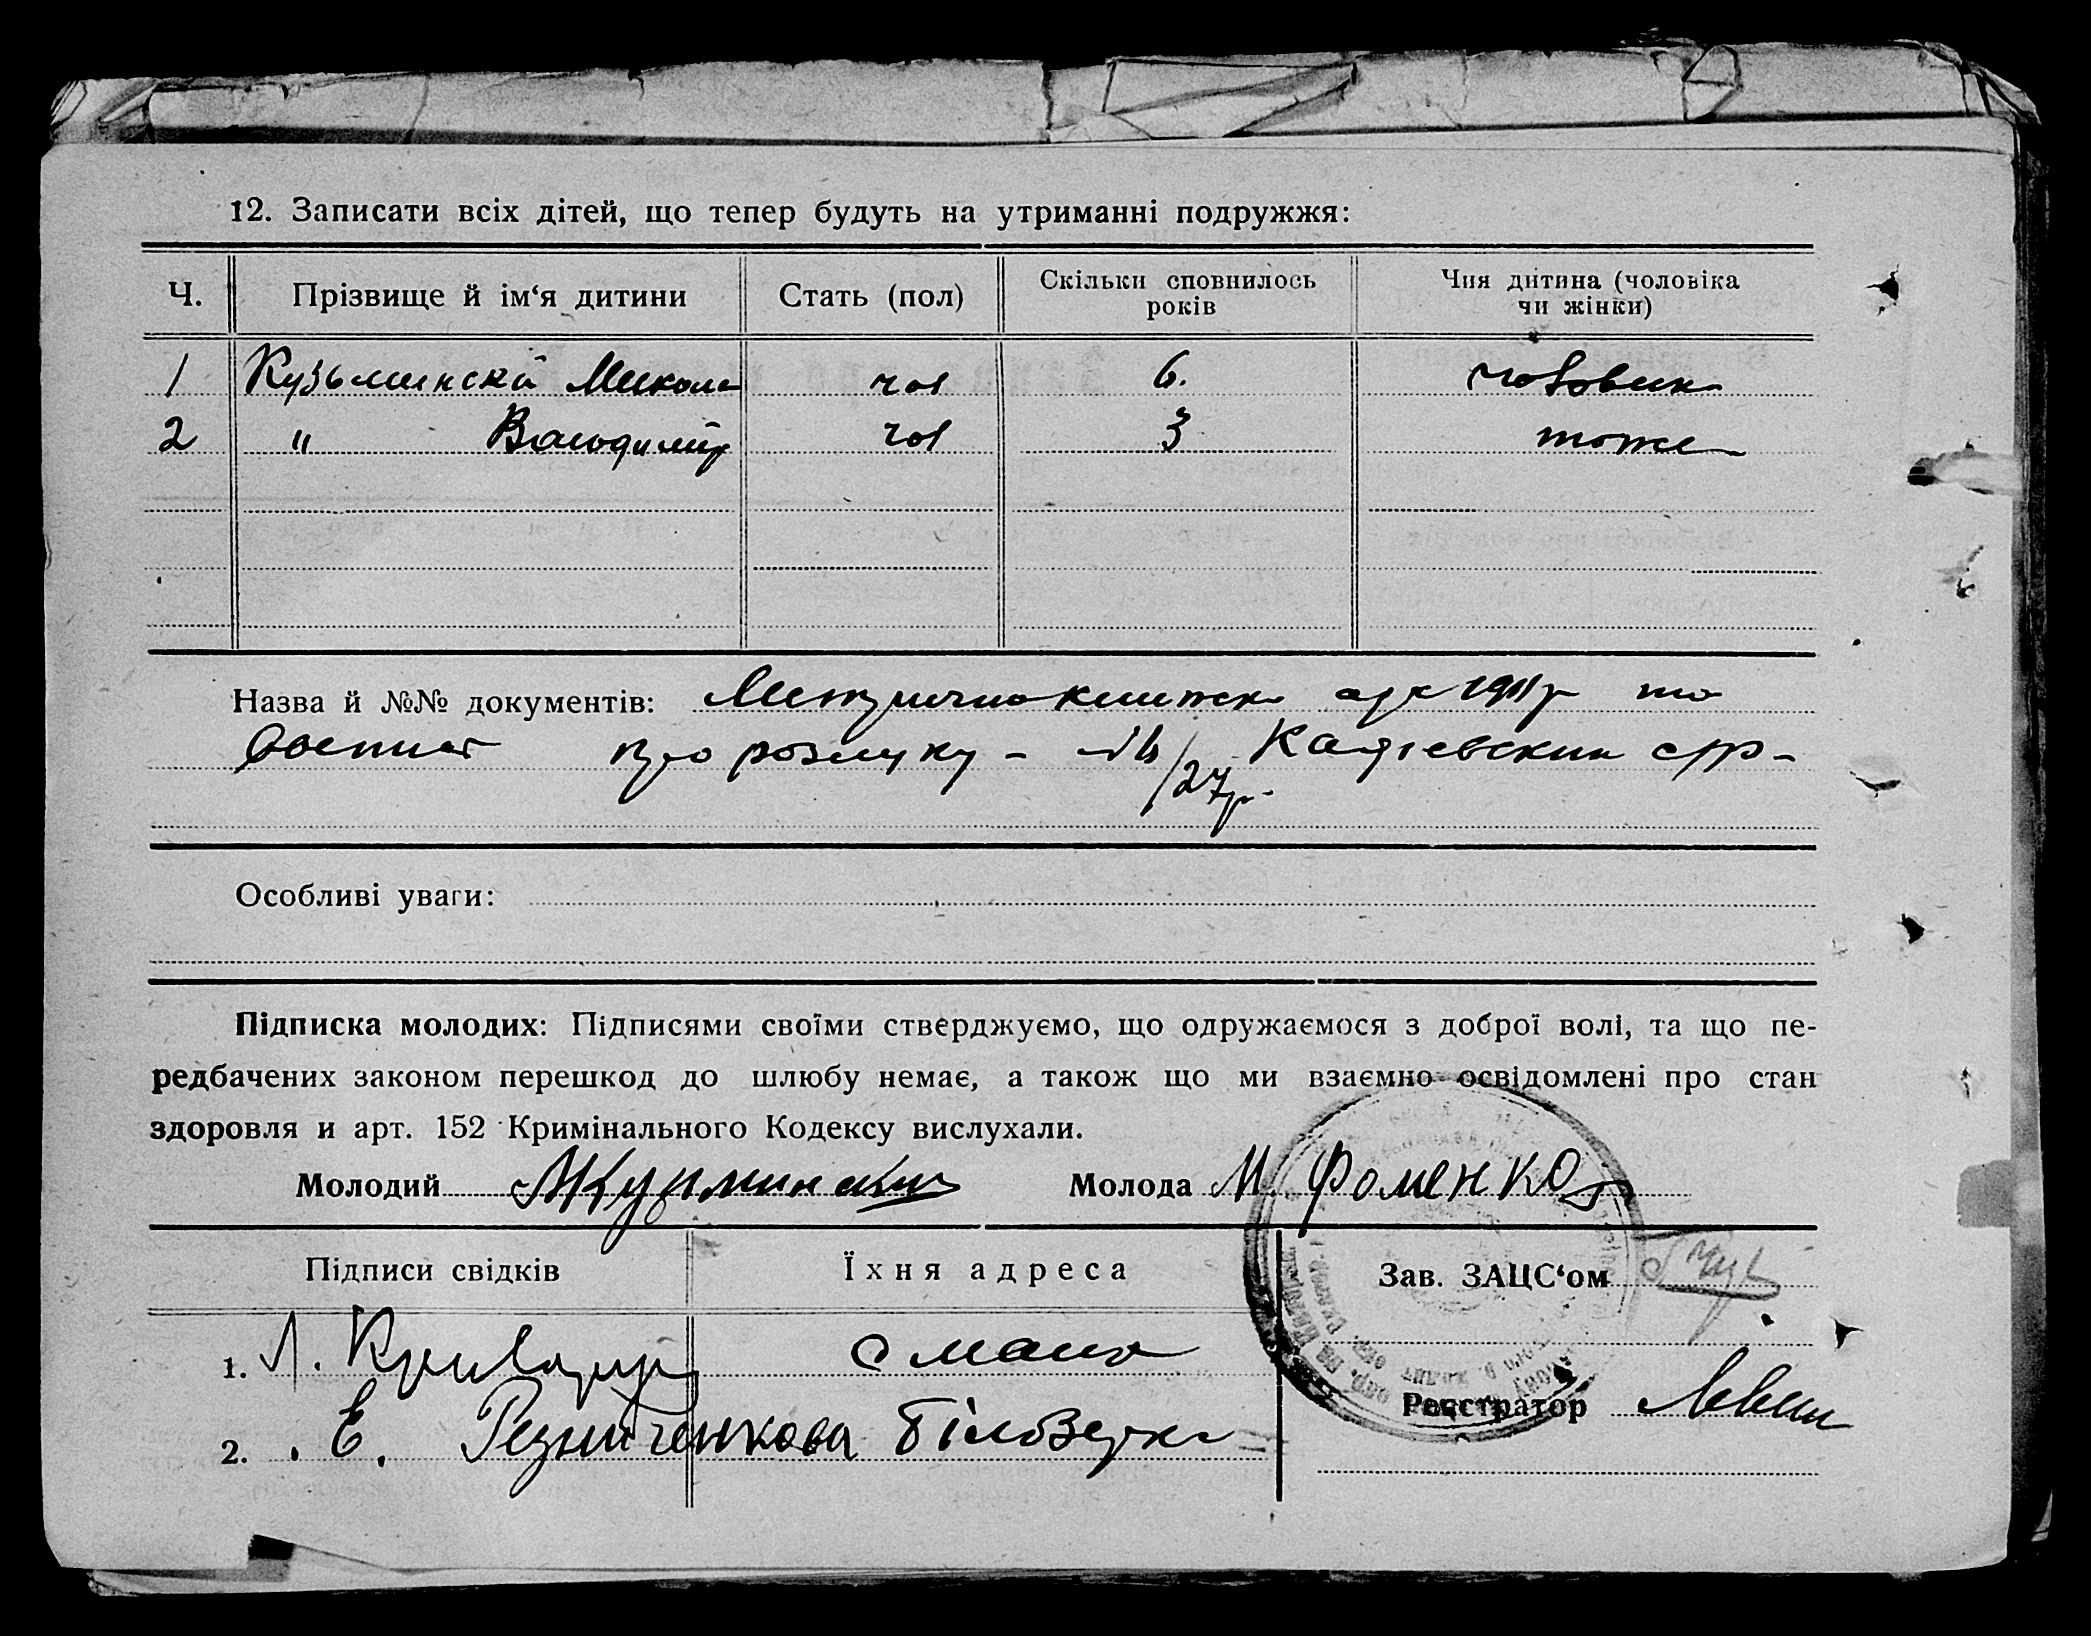 12. Записати всіх дітей, що тепер будуть на утриманні подружжя:
Ч. Прізвище й ім‘я дитини Стать (пол) Скільки сповнилось років Чия дитина (чоловіка чи жінки)
1 Кузьминскій Микола чол 6. чоловик
2 " Володимір чол 3 тоже
Назва й №№ документів: 1911р та
про розлуку - /27р.
Особливі уваги:
Підписка молодих: Підписями своїми стверджуємо, що одружаємося з доброї волі, та що пе-
редбачених законом перешкод до шлюбу немає, а також що ми взаємно освідомлені про стан
здоровля и арт. 152 Кримінального Кодексу вислухали.
Молодий Молода М. Фоменко
Підписи свідків Їхня адреса Зав. ЗАЦС‘ом
1. Л.
Реєстратор
2. Е. Резниченкова